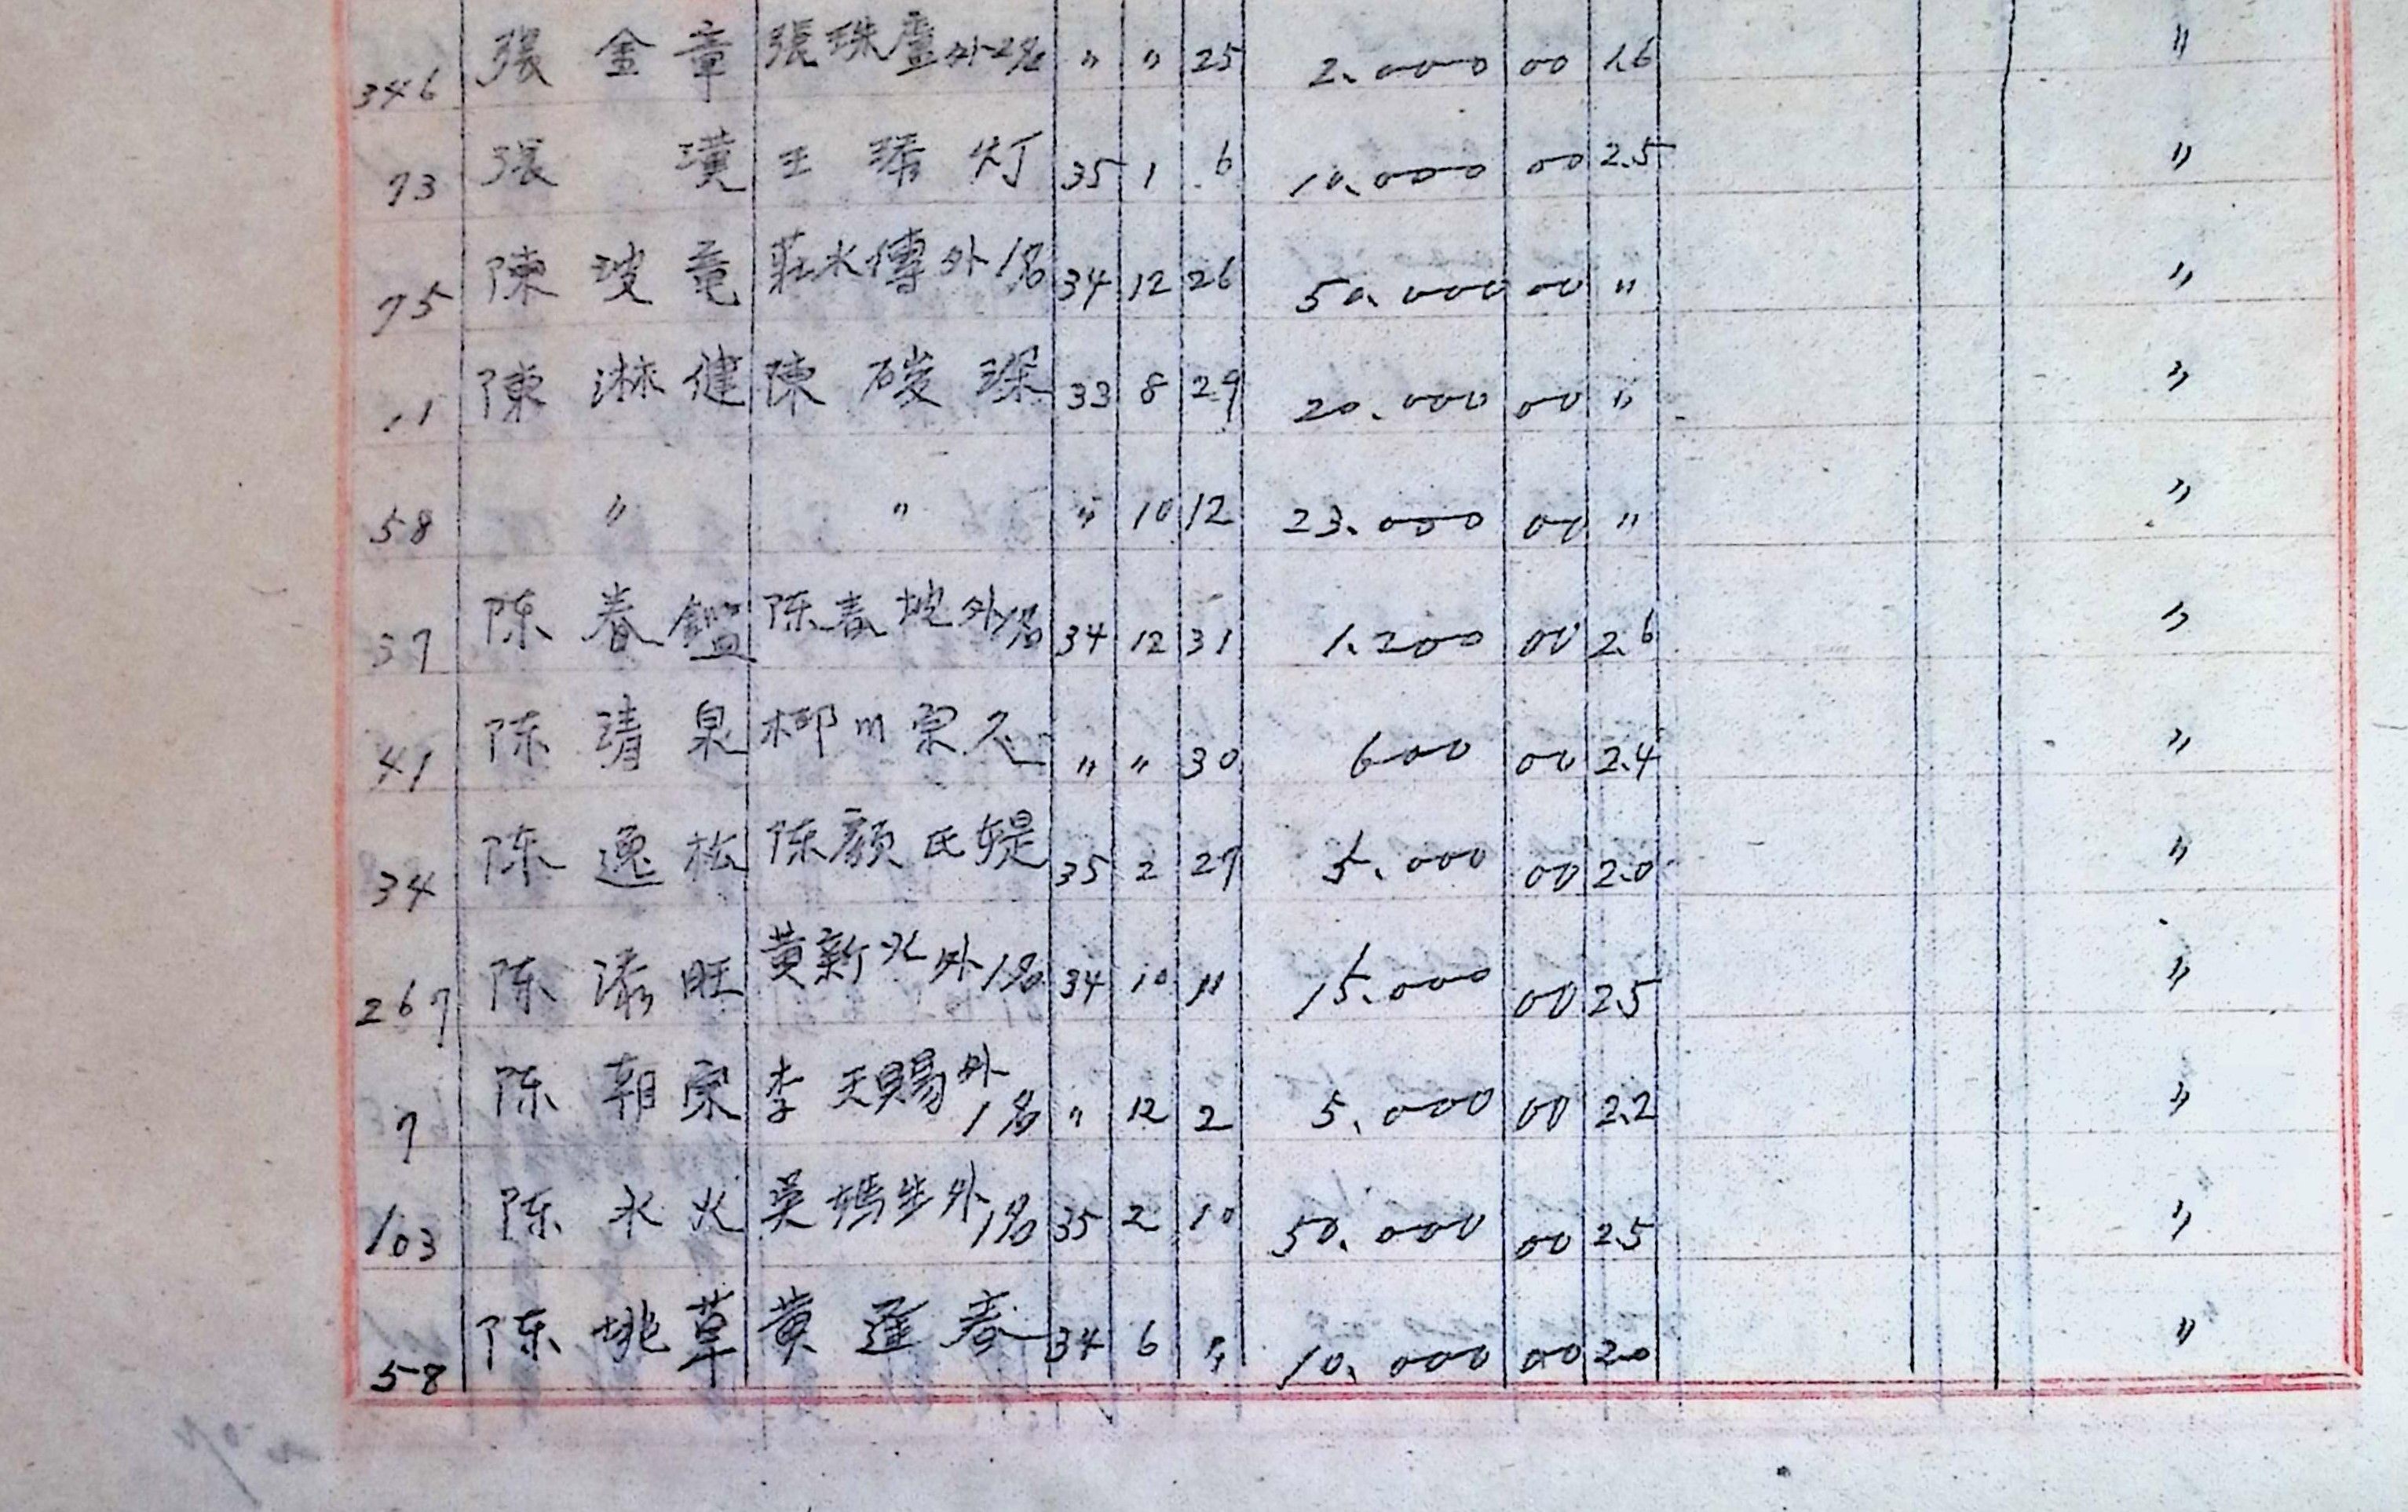 346 張金章 張珠盧外2名 〃 〃 25 2.000 00 1.6 〃
73 張 璜 王 灯 35 1 6 10.000 00 2.5 〃
75 陳 竜 莊水傳外1名 34 12 26 50.000 00 〃 〃
11 陳淋健 陳 琛 33 8 29 20.000 00 〃 〃
58 〃 〃 〃 10 12 23.000 00 〃 〃
37 陈春鑑 陈春坡外1名 34 12 31 1.200 00 2.6 〃
41 陈清泉 柳川宗久 〃 〃 30 600 00 2.4 〃
34 陈逸松 陈顏氏媞 35 2 27 5.000 00 2.0 〃
267 陈添旺 黄新火外1名 34 10 11 15.000 00 2.5 〃
7 陈朝宗 李天賜外1名 〃 12 2 5.000 00 2.2 〃
103 陈水火 吳 生外1名 35 2 10 50.000 00 2.5 〃
58 陈 草 黄逢春 34 6 〃 10.000 00 2.0 〃